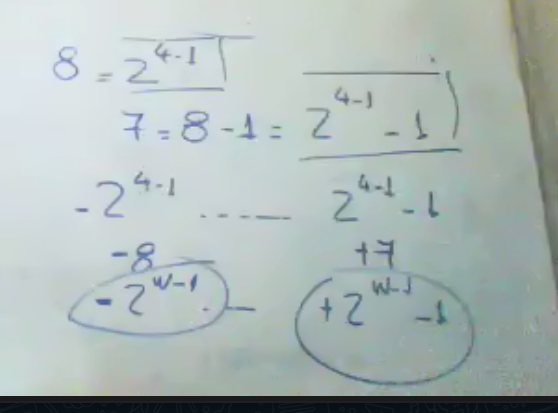 8 = 2^{4-1}
7 = 8 - 1 = 2^{4-1} - 1
- 2^{4-1} ...... 2^{4-1} - 1
-8 +7
- 2^{W-1} ... + 2^{W-1} - 1